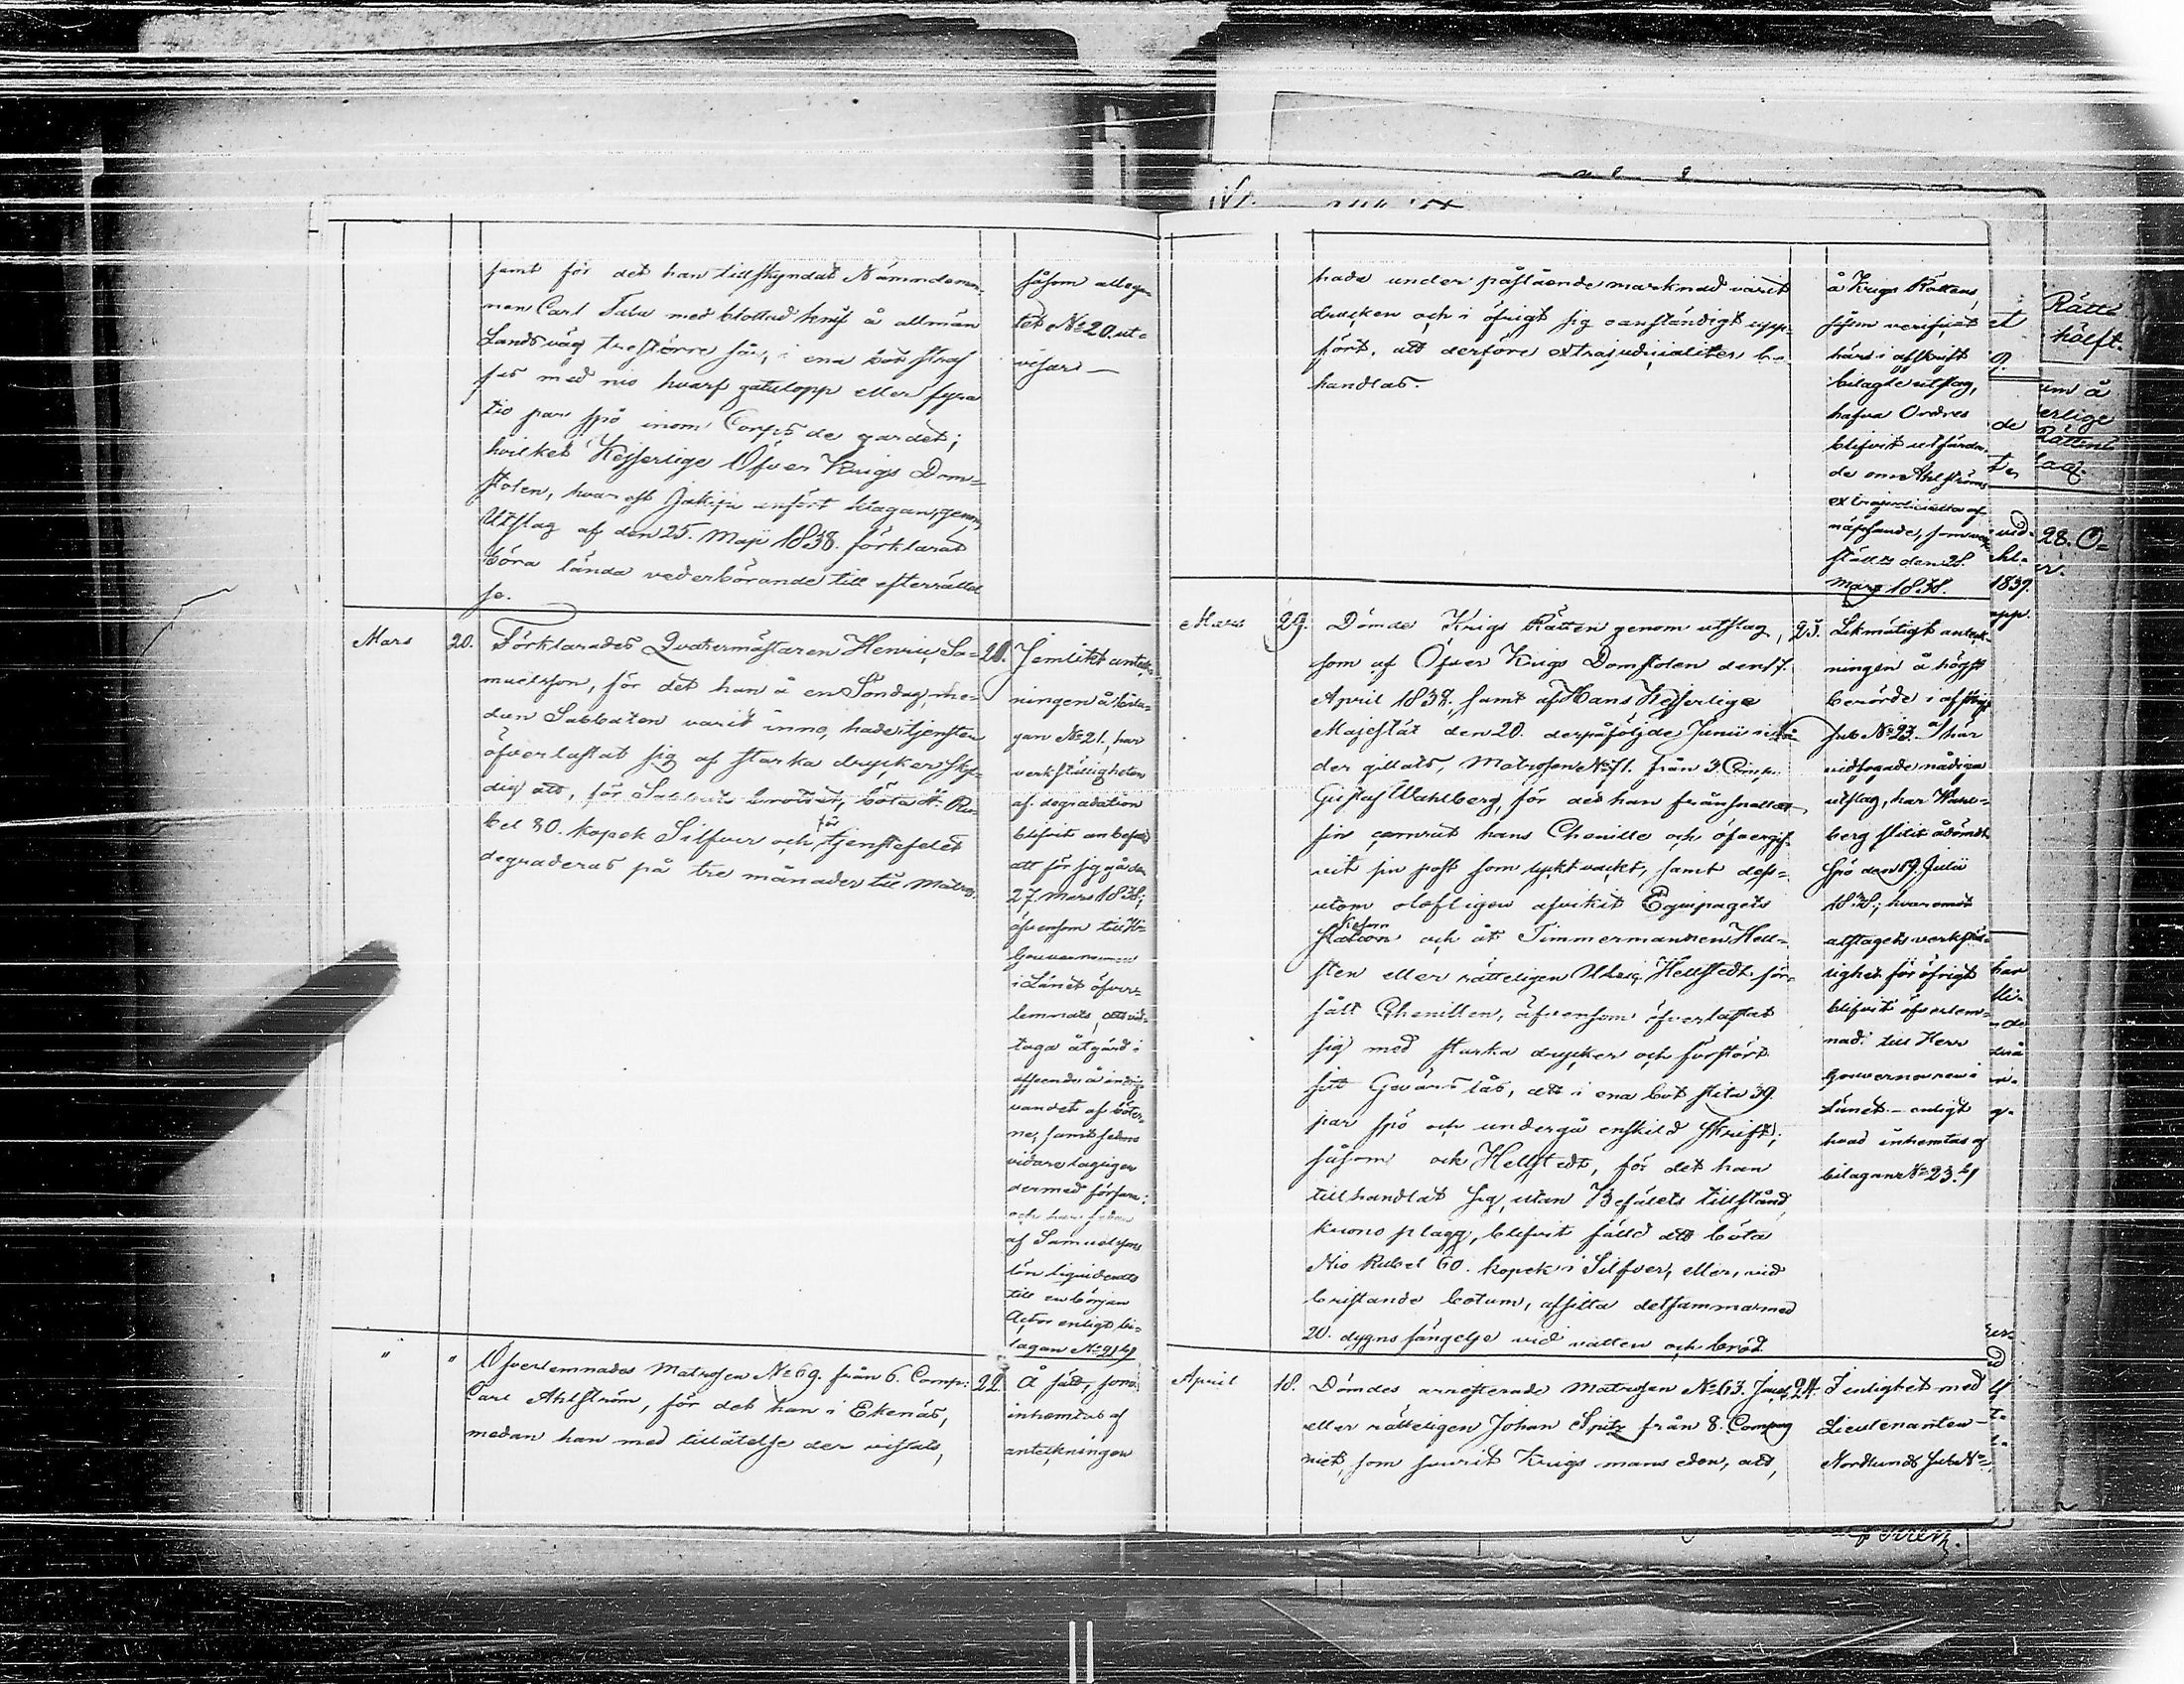 samt för det han tillskyndat Nämndeman
nen Carl med blottad knif å allmän
Landsväg tre större sår, i ena bot straf
fas med nio hvarf gatulopp eller fyra
tio par spö inom Corps de gardet;
hvilket Kejserlige Öfver Krigs Dom=
stolen, hvarest anfört klagan, genom
Utslag af den 25. Maji 1838. förklarat
böra lända vederbörande till efterrättel
se.
såsom allega=
tet No 20. ut=
visar.—
Mars 20. Förklarades Qvatermästaren Henric Sa=
muelsson, för det han å en Söndag, me=
dan Sabbaten varit inne, hade i tjensten
öfverlastat sig af starka drycker skyl=
dig att, för Sabbats brottet, böta Ru=
bel 80. kopek Silfver och för tjenstefelet
degraderas på tre månader till Matros.
21. Jemlikt anteck=
ningen å bila=
gan No 21. har
verkställigheten
af degradation
blifvit anbefald
att för sig gå den
27. Mars 1838;
äfvensom till Hr
Gouverneuren
i Länet öfver=
lemnats, att vid=
taga åtgärd i
afseende å indrif
vandet af böter=
ne, samt sedan
vidare lagligen
dermed förfara;
och har sedan
af Samuelsons
lön liquiderats
till en början
Actor enligt bi=
lagan No 21
" " Öfverlemnades Matrosen No 69. från 6. Comp:
Carl Ahlström, för det han i Ekenäs,
medan han med tillåtelse der vistats,
22. Å sätt, som
inhemtas af
anteckningen
hade under påstående marknad varit
drucken och i öfrigt sig oanständigt upp=
fört, att derföre extrajudicialiter be=
handlas.
å Krigs Rättens,
såsom verificat
härs i afskrift
bilagde utslag,
hafva Ordres
blifvit utfärda=
de om Ahlströms
extrajudiciella af
näpsande, som verk
stälts den 28.
Mars 1838.
Mars 29. Dömde Krigs Rätten genom utslag,
som af Öfver Krigs Domstolen den 17.
April 1838. samt af Hans Kejserlige
Majestät den 20. derpåföljde Junii i nå
der gillats, Matrosen No 71. från 3. Comp.
Gustaf Wahlberg, för det han frånsnattat
sin camrat hans Chenille och öfvergif=
vit sin post som lyktvackt, samt dess=
utom olofligen afvikit Equipagets
och åt Timmermannen Hell=
sten eller rätteligen Ulric Hellstedt för=
sålt Chenillen, äfvensom öfverlastat
sig med starka drycker och förstört
sitt Gevärs lås, att i ena bot slita 39.
par spö och undergå enskild skrift;
såsom ock Hellstedt, för det han
tillhandlat sig, utan Befälets tillstånd,
krono plagg, blifvit fälld att böta
Nio Rubel 60. kopek i Silfver, eller, vid
bristande botum, afsitta detsamma med
20. dygns fängelse vid vatten och bröd.
23. Likmätigt anteck=
ningen å högst
berörde i afskrift
sub No 23. a/ här
vidfogade nådiga
utslag, har Wahl=
berg slitit ådömde
Spö den 19. Julii
1838; hvaremot
utslagets verkstäl=
lighet för öfrigt
blifvit öfverlem=
nad till Herr
Gouverneuren i
Länet - enligt
hvad inhemtas af
bilagans No 23. b/
April 18. Dömdes arresterade Matrosen No 63.
eller rätteligen Johan Spitz från 8. Compag
niet, som svurit Krigs mans eden, att,
24. I enlighet med
Lieutenanten
Nordlunds sub No
Rätte
hölft.
um å
erlige
Rättens
lag.
vid
28. O=
1839.